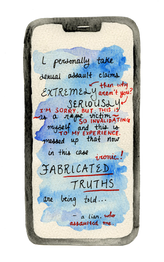 I personally take
sexual assault claims
EXTREMELY then why
SERIOUSLY aren't you?
I'M SORRY, BUT THIS IS
as a rape victim SO INVALIDATING
myself and this is
TO MY EXPERIENCE.
messed up that now
in this case
worse!
FABRICATED
TRUTHS
are being told...
- a liar. who
assaulted me.